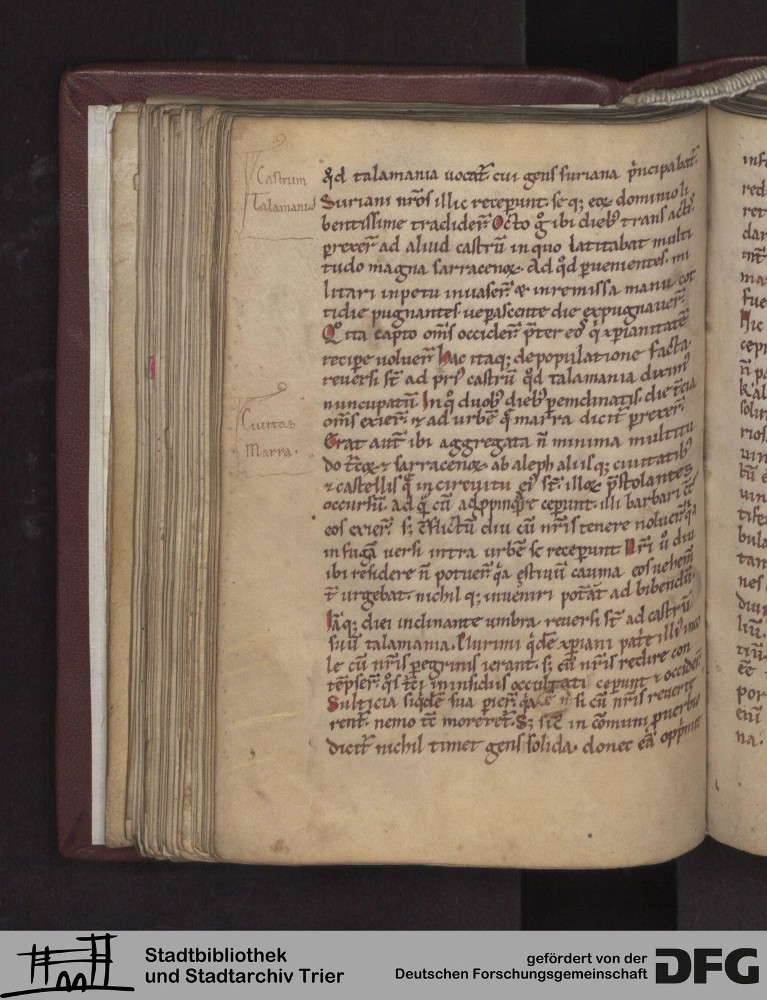 Castrum
Talamania
Ciuitas
Marra.
qd̄ talamania uocat̄. cui gens suriana p̄ncipabat̄.
Suriani nr̄os illic recep̄unt. seq; eoꝝ dominio li
bentissime tradider̄. Octo g̊ ibi dieb; transactis
p̄rexer̄ ad aliud castrū in quo latitabat multi
tudo magna sarracenoꝝ. Ad qd̄ p̱uenientes. mi
litari inpetu inuaser̄ & inremissa manu cot
tidie pugnantes uep̱ascente die expugnauer̄.
Qo ita capto om̄s occider̄ p̄ter eos q̇ xp̄ianitatē
recipe uoluer̄. hac itaq; depopulatione facta.
reuersi st̄ ad pri᷒ castrū qd̄ talamania dixim᷒
nuncupatū. In qo duob; dieb; p̱emclinatis. die t̄cia
om̄s exier̄. & ad urbē q̄ marra dicit̄ p̱rexer̄.
Erat aut̄ ibi aggregata n̄ minima multitu
do t̄coꝝ & sarracenoꝝ. ab aleph aliisq; ciuitatib;
& castellis q̄ in circuitu ei᷒ st̄. illoꝝ p̄stolantes
occursū. ad q̄ cū adp̱pinq̄re cep̱unt. illi barbari cō
eos exier̄. s; ꝯflictū diu cū nr̄is tenere noluer̄. q̄a
in fugā uersi intra urbē se recep̱unt. Nr̄i u̇ diu
ibi residere n̄ potuer̄. q̄a estiuū cauma eos uehem̄
t̄ urgebat. nichil q; inueniri pot̄at ad bibendū.
Iāq; diei inclinante umbra reuersi st̄ ad castrū
suū talamania. Plurimi q̇dē xp̄iani pat̄e illi᷒ inco
le cū nr̄is p̱egrinis ierant. s; cū nr̄is redire con
tēpser̄. qo̅s t̄ci in insidiis occultati cep̱unt & occider̄.
Stulticia siq̇dē sua pier̄. q̄a si cū nr̄is reuerte
rent̄. nemo tc̄ moreret̄. S; sic̄ in cōmuni p̱uerbio
dicit̄ nichil timet gens solida. donec eā opp̄mit
Stadtbibliothek
und Stadtarchiv Trier
gefördert von der
Deutschen Forschungsgemeinschaft
DFG